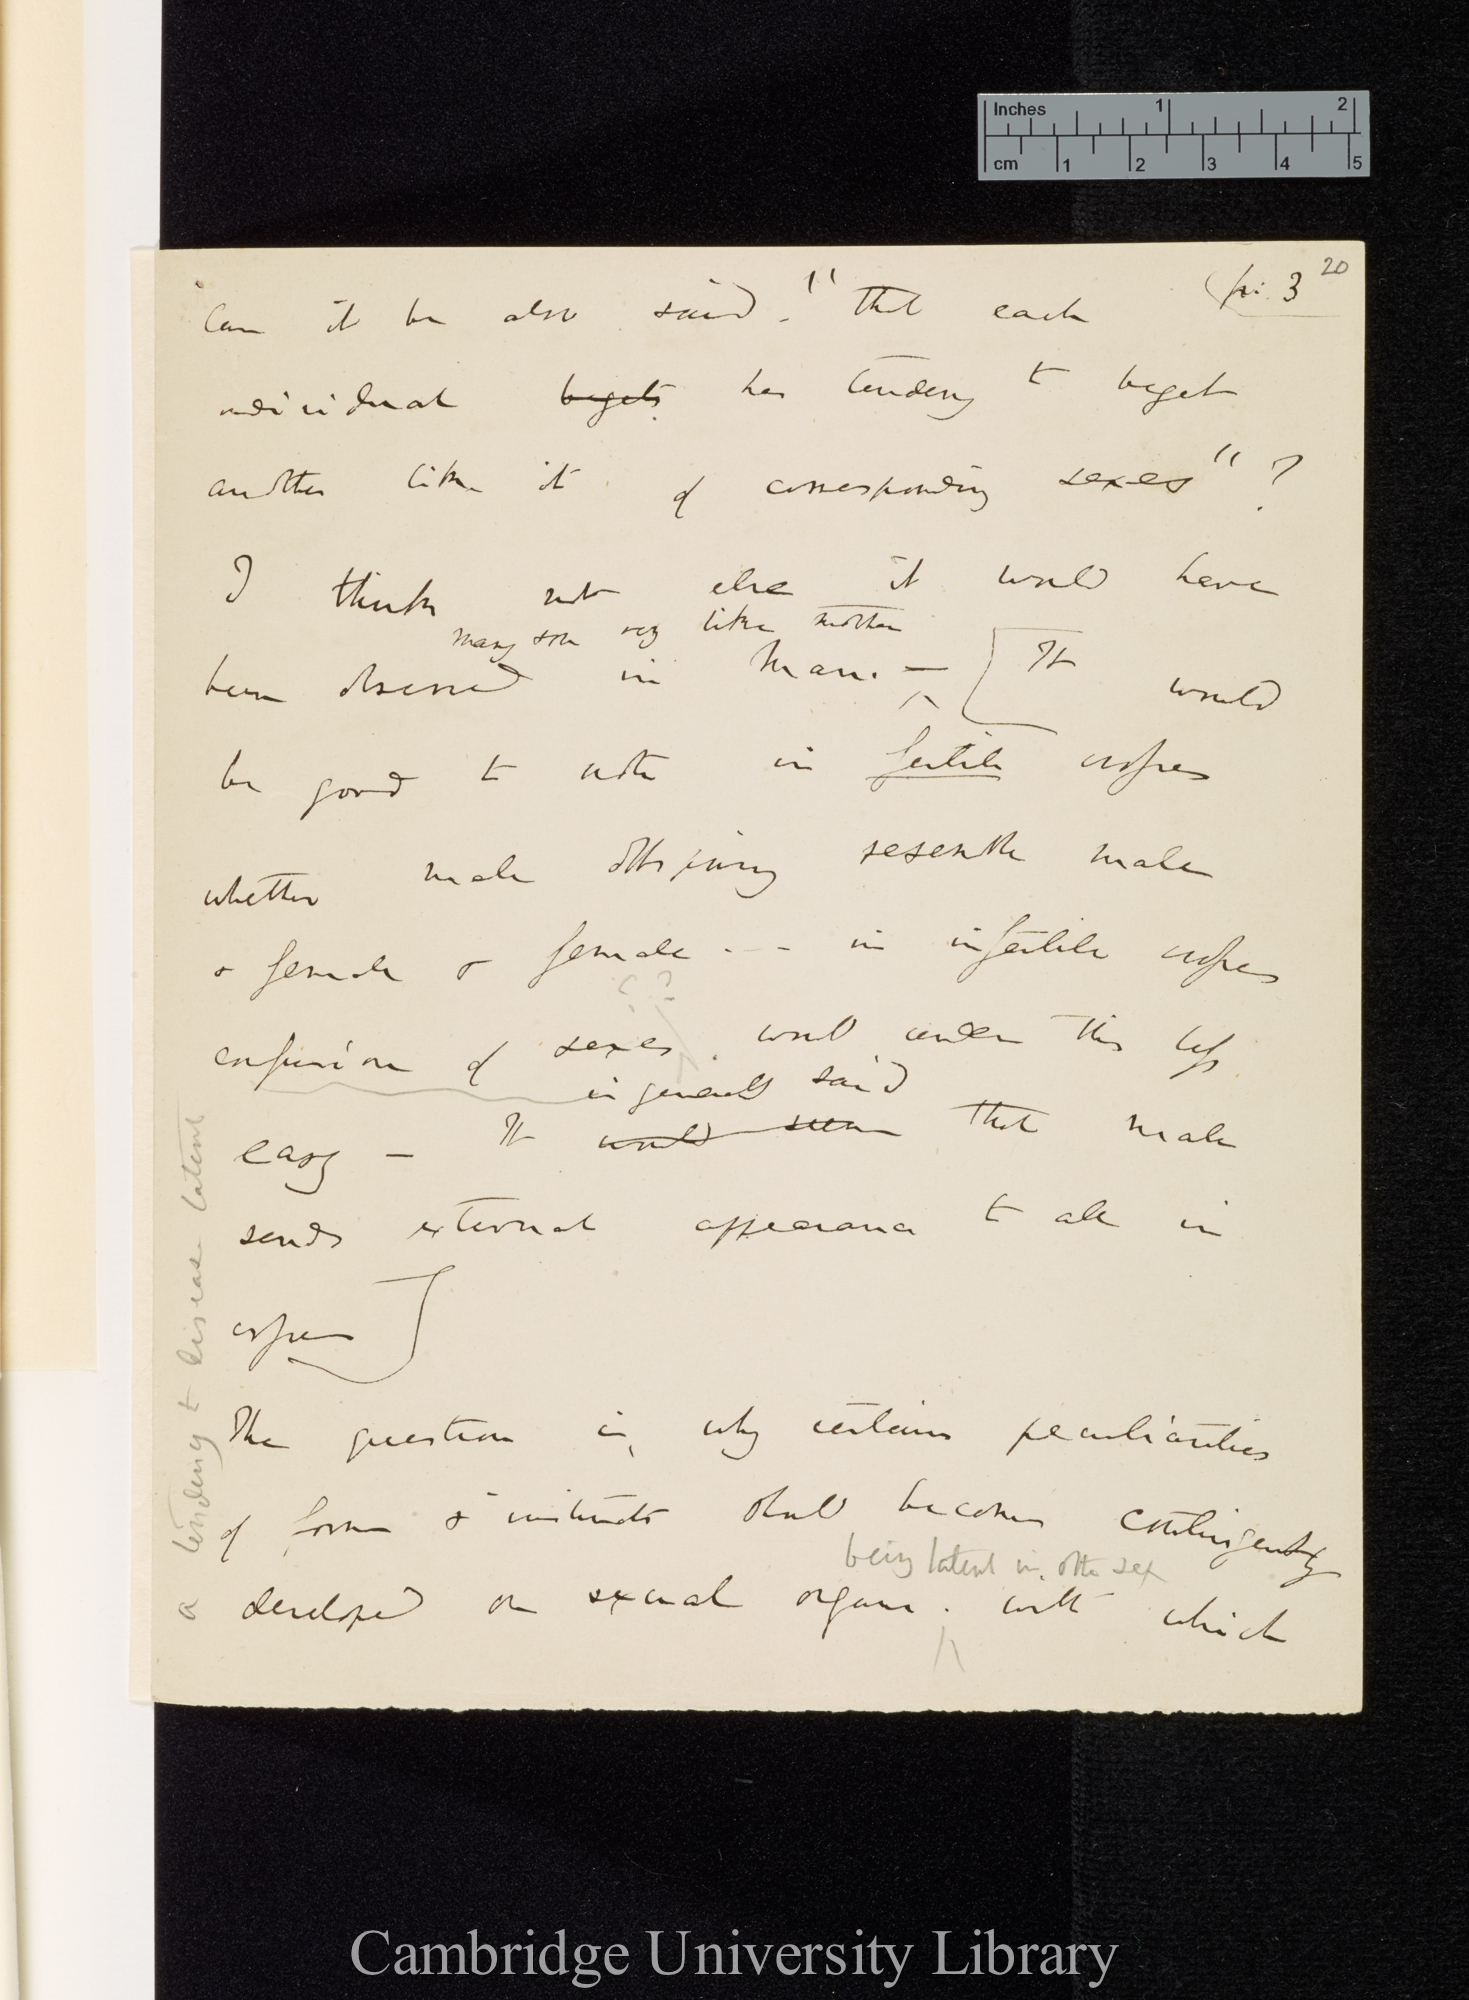 Inches 1 2
cm 1 2 3 4 5
20
Can it be also said. "that each
individual begets has tendency to beget
another like it of corresponding sexes"?
I think not else it would have
many son very like mother
been observed in Man. — [It would
be good to note in fertile crosses
whether male offspring resemble male
& female & female - - - in infertile crosses
confusion of sexes. would under this
is generally said
easy — It would seem that male
sends external appearance to all in
crosses]
The question is, why certain peculiarities
of form & instincts should become contingently
being latent in other sex
developed on sexual organs. with which
a tendency to disease latent
Cambridge University Library